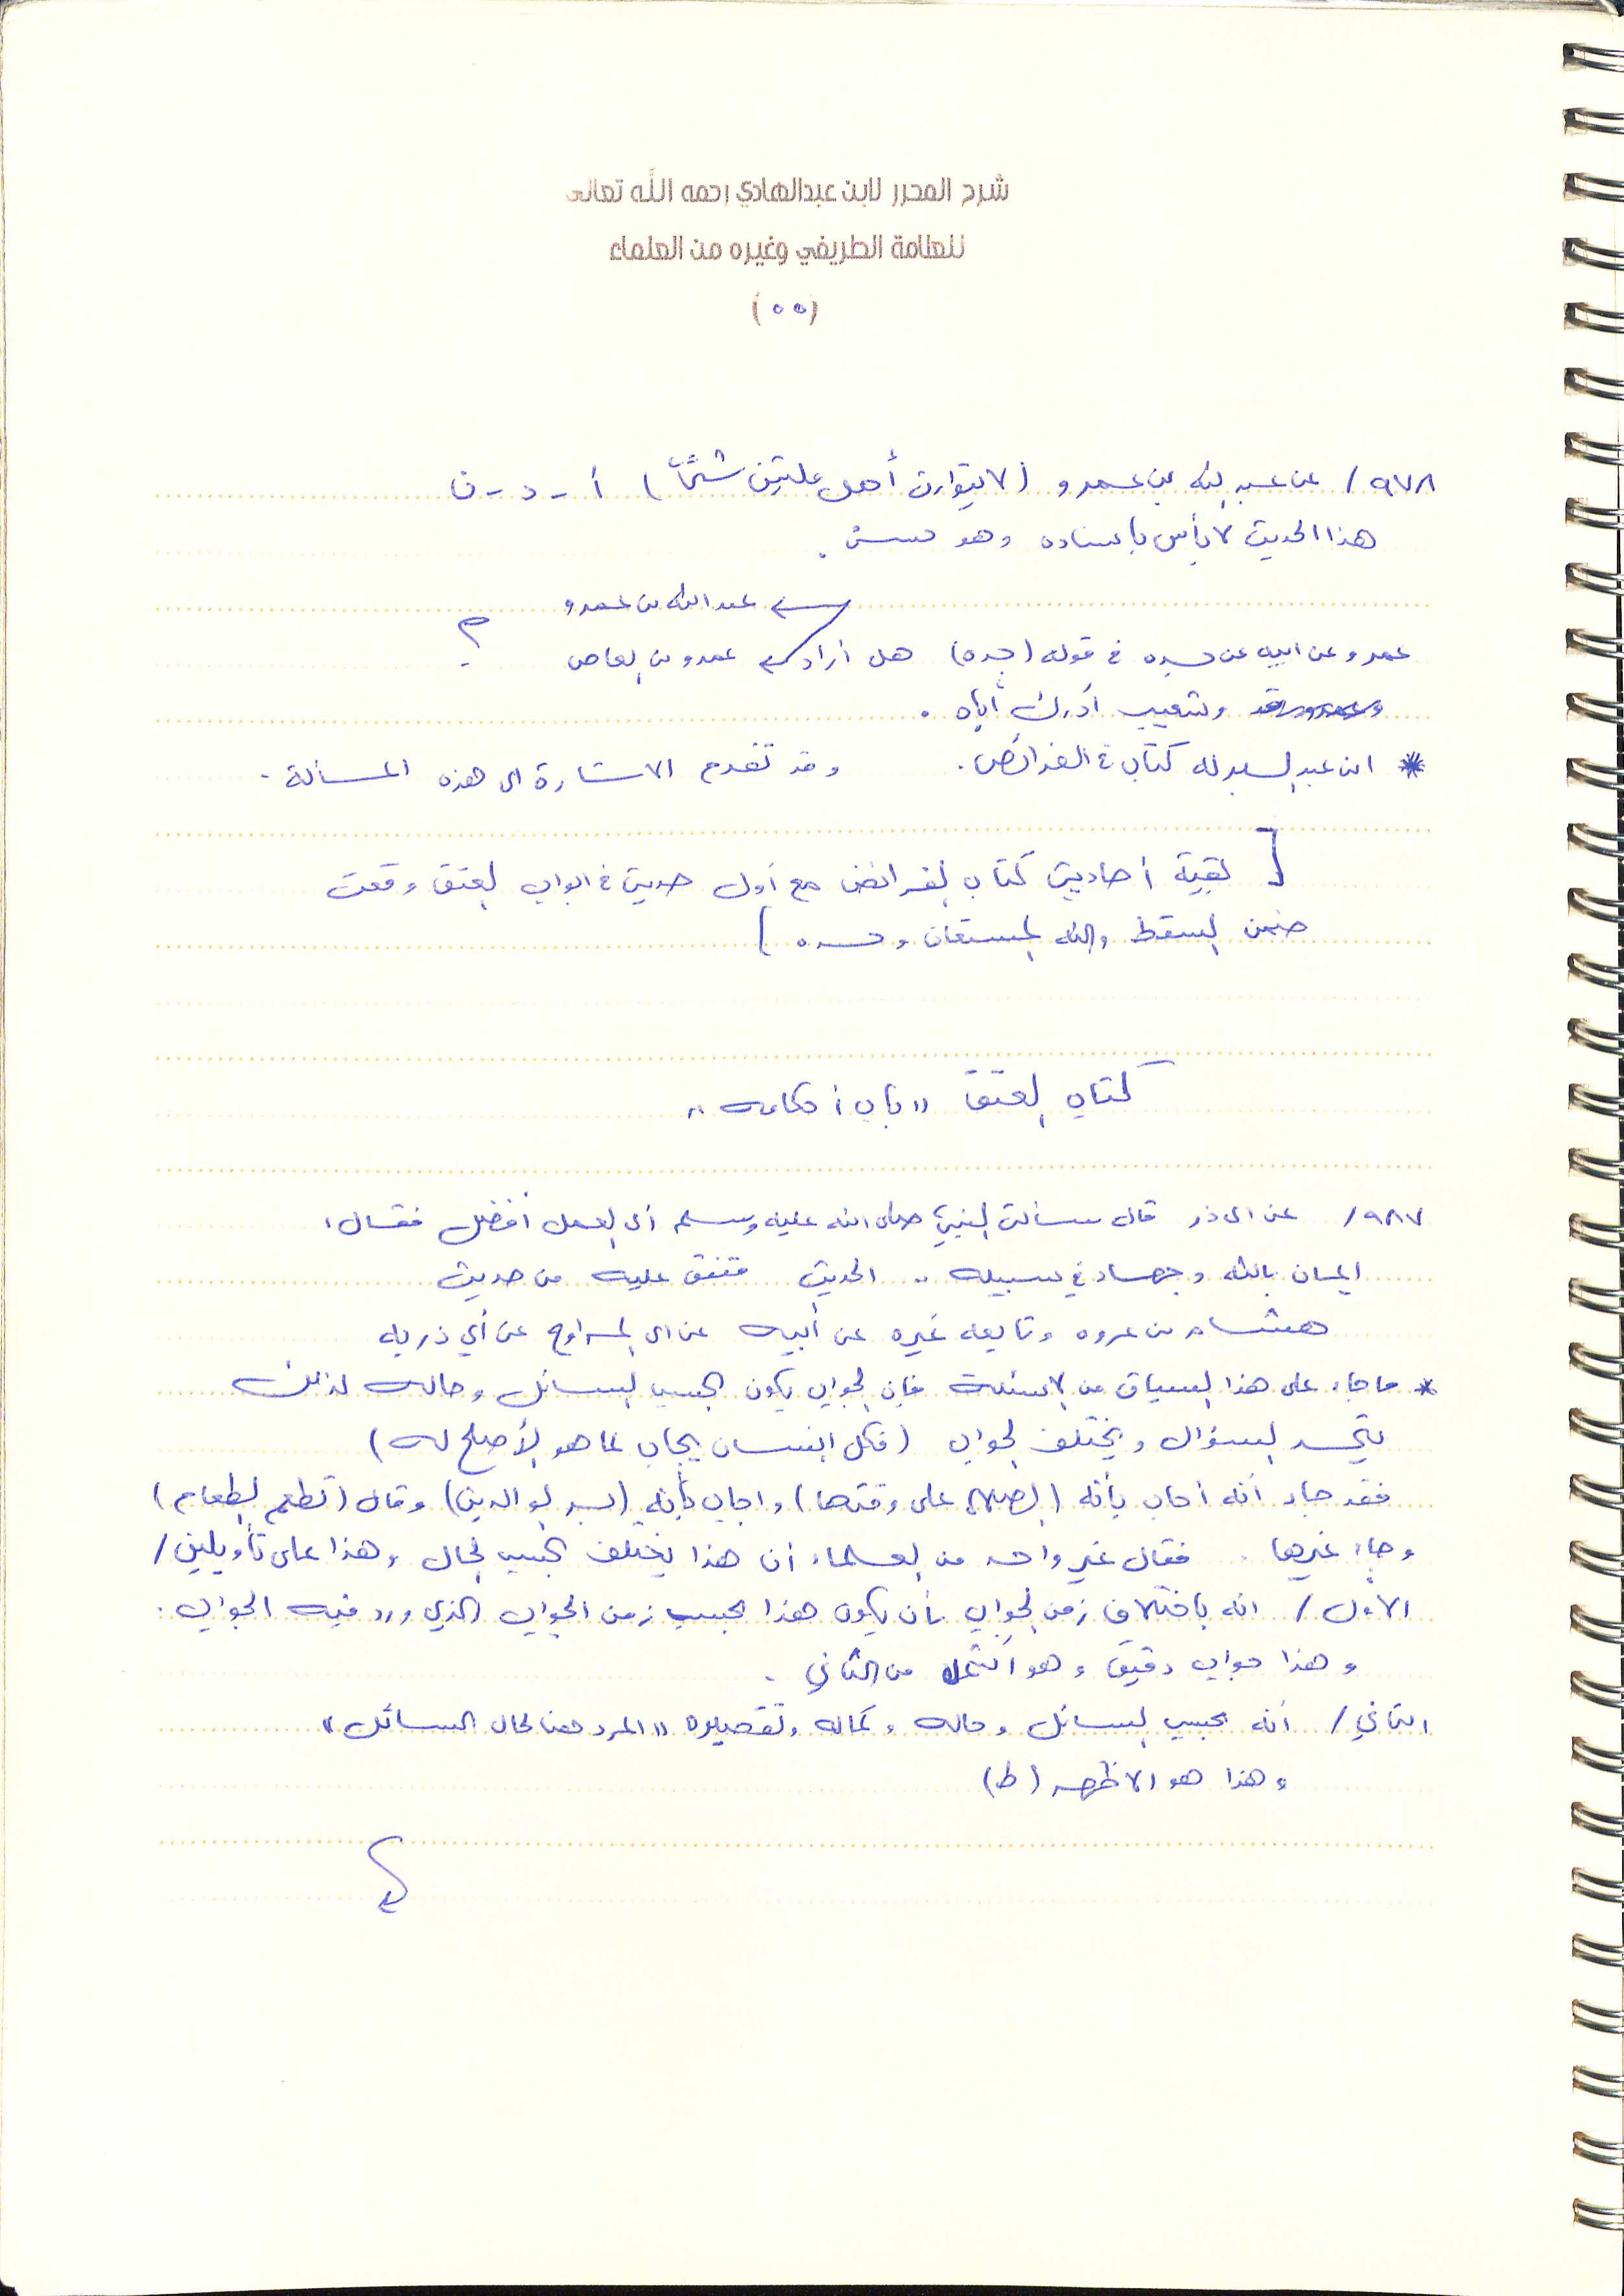 شرح المحرر لابن عبدالهادي رحمه الله تعالى
للعلامة الطريفي وغيره من العلماء
(٥٥)
٩٧٨/ عن عبد الله بن عمرو (لا يتوارث أهل ملتين شتى) أ - د - ن
هذا الحديث لا بأس بإسناده وهو حسن .
عبد الله بن عمرو
عمرو عن ابيه عن جده في قوله (جده) هل أراد عمرو بن العاص ؟
وشعيب أدرك أباه .
* ابن عبد البر له كتاب في الفرائض . وقد تقدم الاشارة الى هذه المسألة .
[ بقية أحاديث كتاب الفرائض مع أول حديث في ابواب العتق وقعت
ضمن السقط والله المستعان وحده ]
كتاب العتق " باب أحكامه "
٩٨٧/ عن ابى ذر قال سألت النبي صلى الله عليه وسلم أى العمل أفضل فقال :
ايمان بالله وجهاد في سبيله .. الحديث متفق عليه من حديث
هشام بن عروه وتابعه غيره عن أبيه عن ابى المراوح عن أبي ذر به
* ما جاء على هذا السياق من الاسئلة فإن الجواب يكون بحسب السائل وحاله لذلك
يتحد السؤال ويختلف الجواب (فكل انسان يجاب بما هو الأصلح له)
فقد جاء أنه أجاب بأنه (الصلاة على وقتها) واجاب بأنه (بر الوالدين) وقال (تطعم الطعام)
وجاء غيرها . فقال غير واحد من العلماء أن هذا يختلف بحسب الحال وهذا على تأويلين /
الأول / انه باختلاف زمن الجواب بأن يكون هذا بحسب زمن الجواب الذي ورد فيه الجواب .
وهذا جواب دقيق وهو أشمل من الثاني .
الثاني / أنه بحسب السائل وحاله وكماله وتقصيره " المرد هنا لحال السائل "
وهذا هو الاظهر (ط)